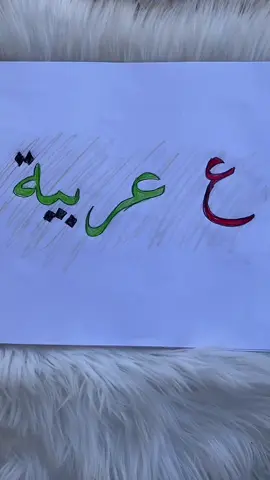 ع عربية